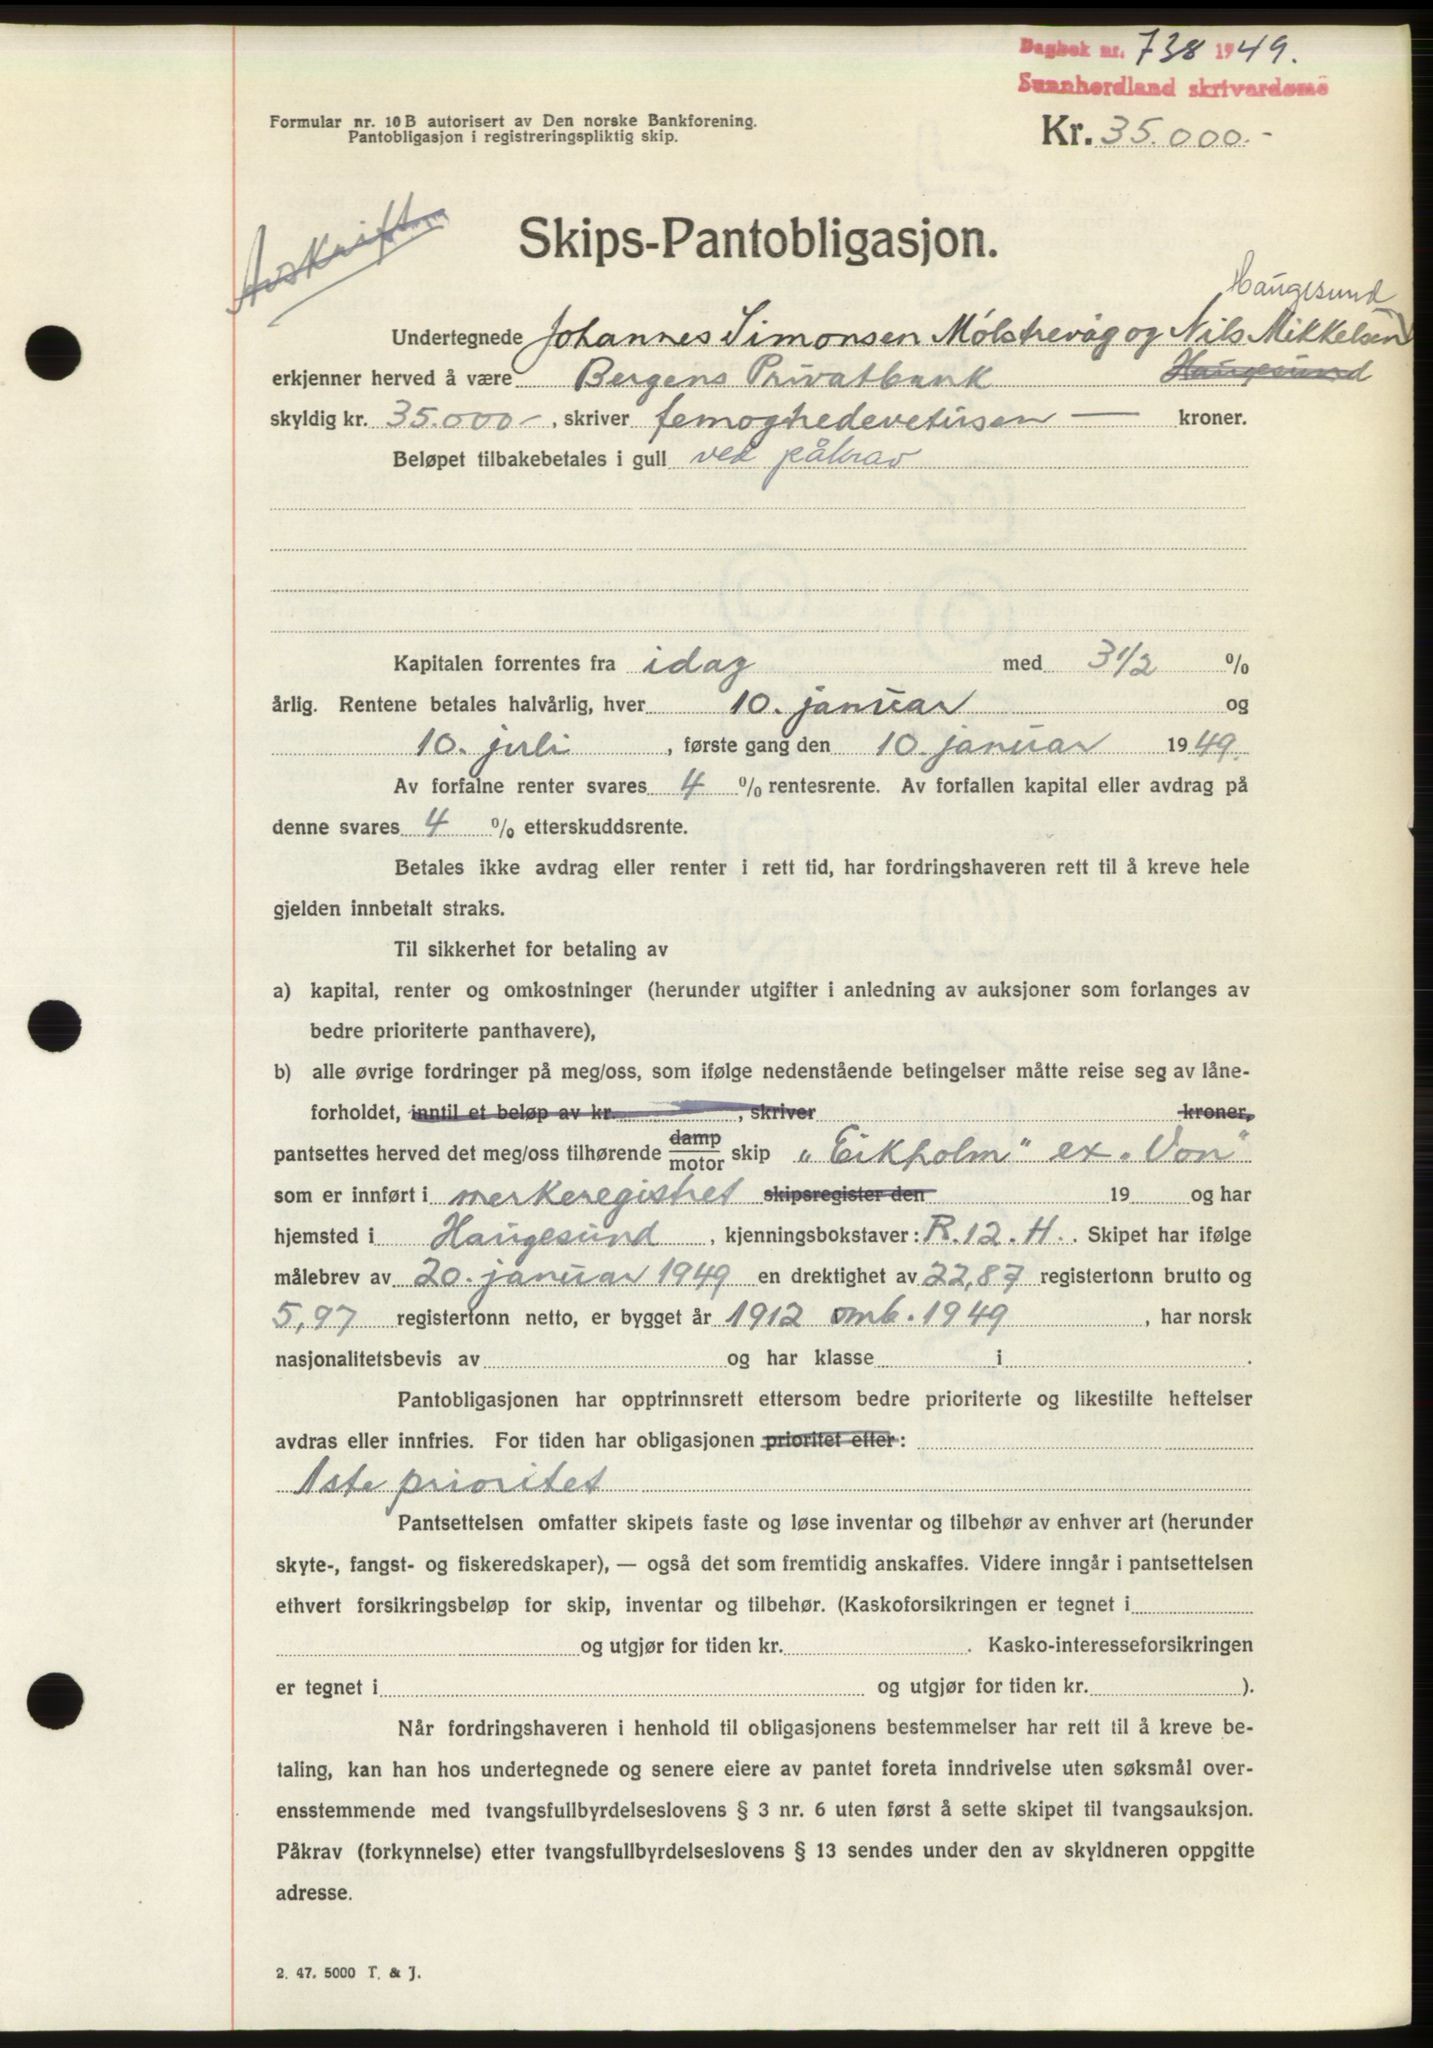 Dagbok nr. 738 1949.
Sunnhordland skrivardøme
Formular nr. 10 B autorisert av Den norske Bankforening.
Pantobligasjon i registreringspliktig skip.
Kr. 35.000.-
Avskrift
Skips-Pantobligasjon.
Haugesund
Undertegnede Johannes Simonsen Mølstrevåg og Nils Mikkelsen
erkjenner herved å være Bergens Privatbank Haugesund
skyldig kr. 35.000.-, skriver femoghedevetusen — kroner.
Beløpet tilbakebetales i gull ved påkrav
Kapitalen forrentes fra idag med 3 1/2 %
årlig. Rentene betales halvårlig, hver 10. januar og
10. juli, første gang den 10. januar 1949.
Av forfalne renter svares 4 % rentesrente. Av forfallen kapital eller avdrag på
denne svares 4 % etterskuddsrente.
Betales ikke avdrag eller renter i rett tid, har fordringshaveren rett til å kreve hele
gjelden innbetalt straks.
Til sikkerhet for betaling av
a) kapital, renter og omkostninger (herunder utgifter i anledning av auksjoner som forlanges av
bedre prioriterte panthavere),
b) alle øvrige fordringer på meg/oss, som ifølge nedenstående betingelser måtte reise seg av låne-
forholdet, inntil et beløp av kr. , skriver kroner,
pantsettes herved det meg/oss tilhørende damp/motor skip "Eikholm" ex. "Von"
som er innført i merkeregistret skipsregister den 19 og har
hjemsted i Haugesund, kjenningsbokstaver: R.12.H. Skipet har ifølge
målebrev av 20. januar 1949 en drektighet av 22,87 registertonn brutto og
5,97 registertonn netto, er bygget år 1912 omb. 1949, har norsk
nasjonalitetsbevis av og har klasse i .
Pantobligasjonen har opptrinnsrett ettersom bedre prioriterte og likestilte heftelser
avdras eller innfries. For tiden har obligasjonen prioritet etter:
1ste prioritet
Pantsettelsen omfatter skipets faste og løse inventar og tilbehør av enhver art (herunder
skyte-, fangst- og fiskeredskaper), — også det som fremtidig anskaffes. Videre inngår i pantsettelsen
ethvert forsikringsbeløp for skip, inventar og tilbehør. (Kaskoforsikringen er tegnet i
og utgjør for tiden kr. . Kasko-interesseforsikringen
er tegnet i og utgjør for tiden kr. ).
Når fordringshaveren i henhold til obligasjonens bestemmelser har rett til å kreve be-
taling, kan han hos undertegnede og senere eiere av pantet foreta inndrivelse uten søksmål over-
ensstemmende med tvangsfullbyrdelseslovens § 3 nr. 6 uten først å sette skipet til tvangsauksjon.
Påkrav (forkynnelse) etter tvangsfullbyrdelseslovens § 13 sendes under den av skyldneren oppgitte
adresse.
2. 47. 5000 T. & J.